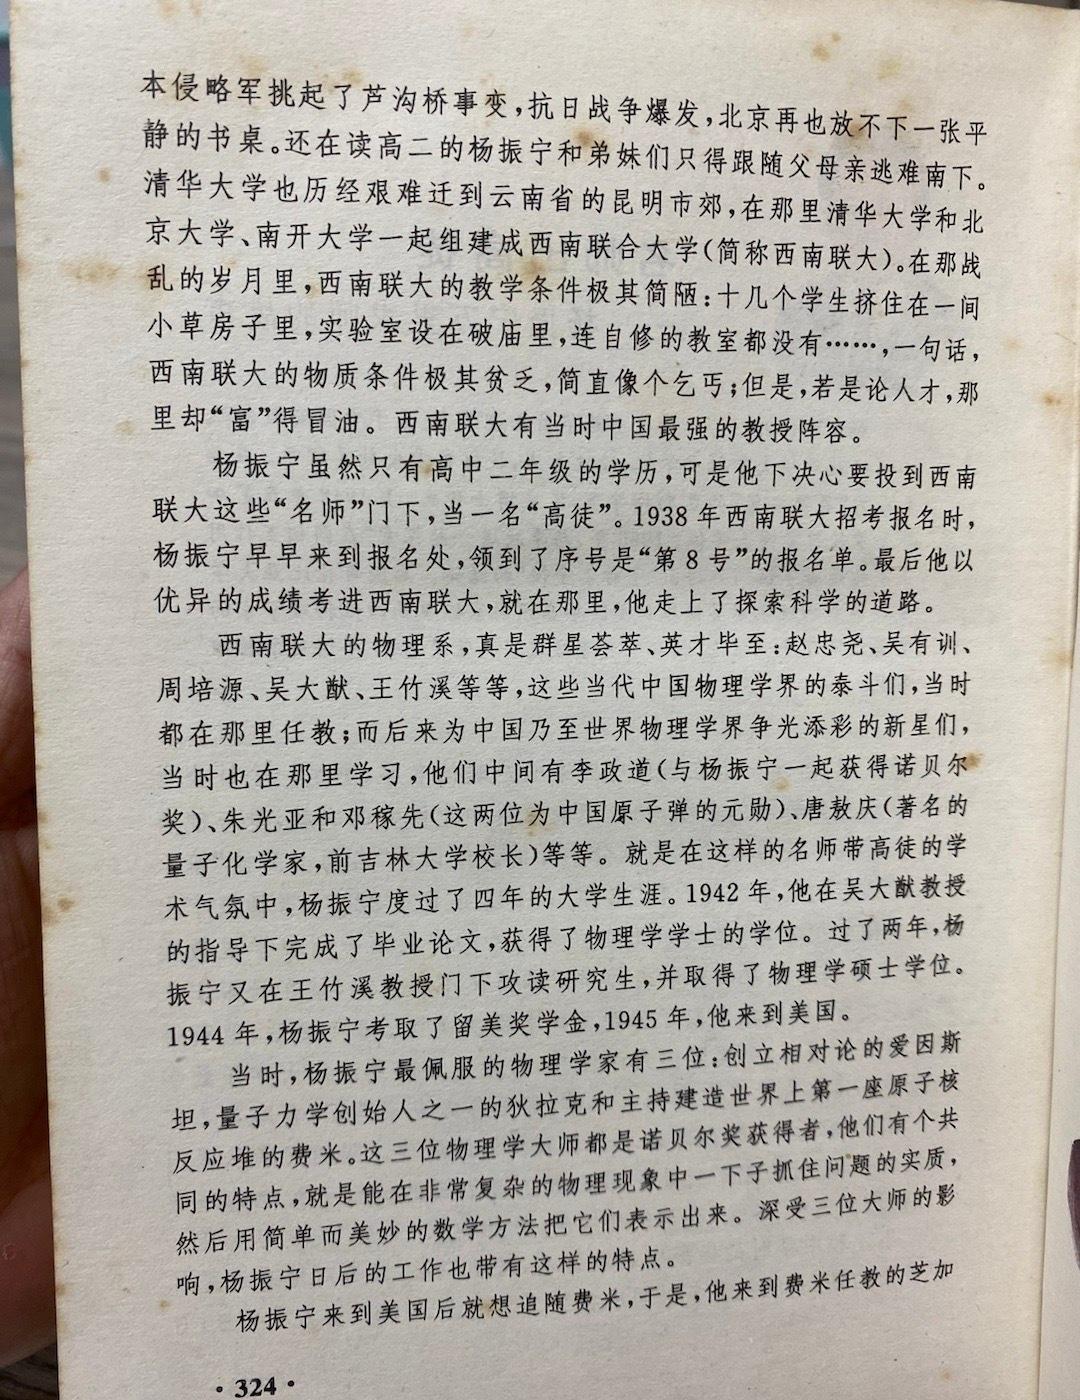 本侵略军挑起了芦沟桥事变,抗日战争爆发,北京再也放不下一张平
静的书桌。还在读高二的杨振宁和弟妹们只得跟随父母亲逃难南下。
清华大学也历经艰难迁到云南省的昆明市郊,在那里清华大学和北
京大学、南开大学一起组建成西南联合大学(简称西南联大)。在那战
乱的岁月里,西南联大的教学条件极其简陋:十几个学生挤住在一间
小草房子里,实验室设在破庙里,连自修的教室都没有……,一句话,
西南联大的物质条件极其贫乏,简直像个乞丐;但是,若是论人才,那
里却“富”得冒油。西南联大有当时中国最强的教授阵容。
杨振宁虽然只有高中二年级的学历,可是他下决心要投到西南
联大这些“名师”门下,当一名“高徒”。1938年西南联大招考报名时,
杨振宁早早来到报名处,领到了序号是“第8号”的报名单。最后他以
优异的成绩考进西南联大,就在那里,他走上了探索科学的道路。
西南联大的物理系,真是群星荟萃、英才毕至:赵忠尧、吴有训、
周培源、吴大猷、王竹溪等等,这些当代中国物理学界的泰斗们,当时
都在那里任教;而后来为中国乃至世界物理学界争光添彩的新星们,
当时也在那里学习,他们中间有李政道(与杨振宁一起获得诺贝尔
奖)、朱光亚和邓稼先(这两位为中国原子弹的元勋)、唐敖庆(著名的
量子化学家,前吉林大学校长)等等。就是在这样的名师带高徒的学
术气氛中,杨振宁度过了四年的大学生涯。1942年,他在吴大猷教授
的指导下完成了毕业论文,获得了物理学学士的学位。过了两年,杨
振宁又在王竹溪教授门下攻读研究生,并取得了物理学硕士学位。
1944年,杨振宁考取了留美奖学金,1945年,他来到美国。
当时,杨振宁最佩服的物理学家有三位:创立相对论的爱因斯
坦,量子力学创始人之一的狄拉克和主持建造世界上第一座原子核
反应堆的费米。这三位物理学大师都是诺贝尔奖获得者,他们有个共
同的特点,就是能在非常复杂的物理现象中一下子抓住问题的实质,
然后用简单而美妙的数学方法把它们表示出来。深受三位大师的影
响,杨振宁日后的工作也带有这样的特点。
杨振宁来到美国后就想追随费米,于是,他来到费米任教的芝加
·324·